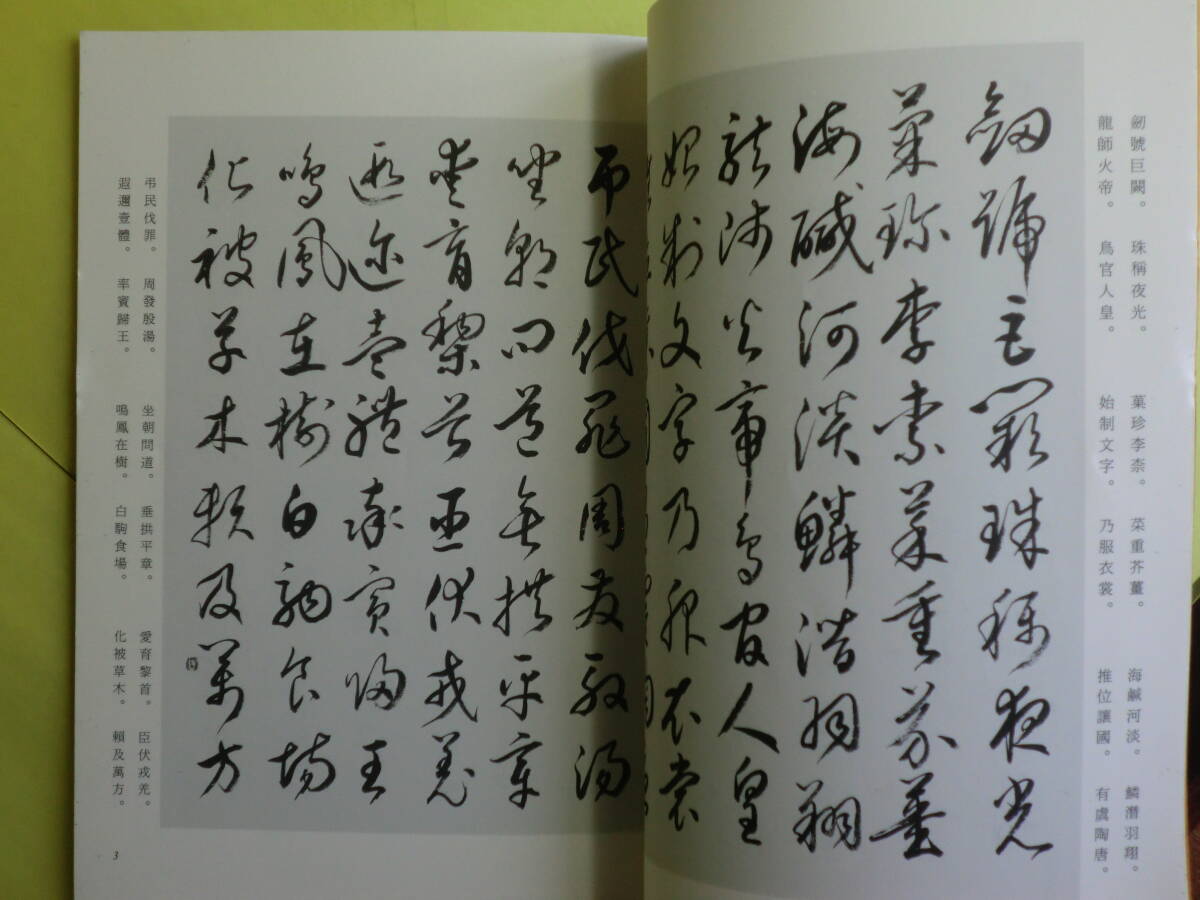 劒號巨闕。 珠稱夜光。 菓珍李柰。 菜重芥薑。 海鹹河淡。 鱗潛羽翔。
龍師火帝。 鳥官人皇。 始制文字。 乃服衣裳。 推位讓國。 有虞陶唐。
劒號巨闕珠稱夜光
菓珍李柰菜重芥薑
海鹹河淡鱗潛羽翔
龍師火帝鳥官人皇
始制文字乃服衣裳
弔民伐罪周發殷湯
坐朝問道垂拱平章
愛育黎首臣伏戎羌
遐邇壹體率賓歸王
鳴鳳在樹白駒食場
化被草木賴及萬方
弔民伐罪。 周發殷湯。 坐朝問道。 垂拱平章。 愛育黎首。 臣伏戎羌。
遐邇壹體。 率賓歸王。 鳴鳳在樹。 白駒食場。 化被草木。 賴及萬方。
3